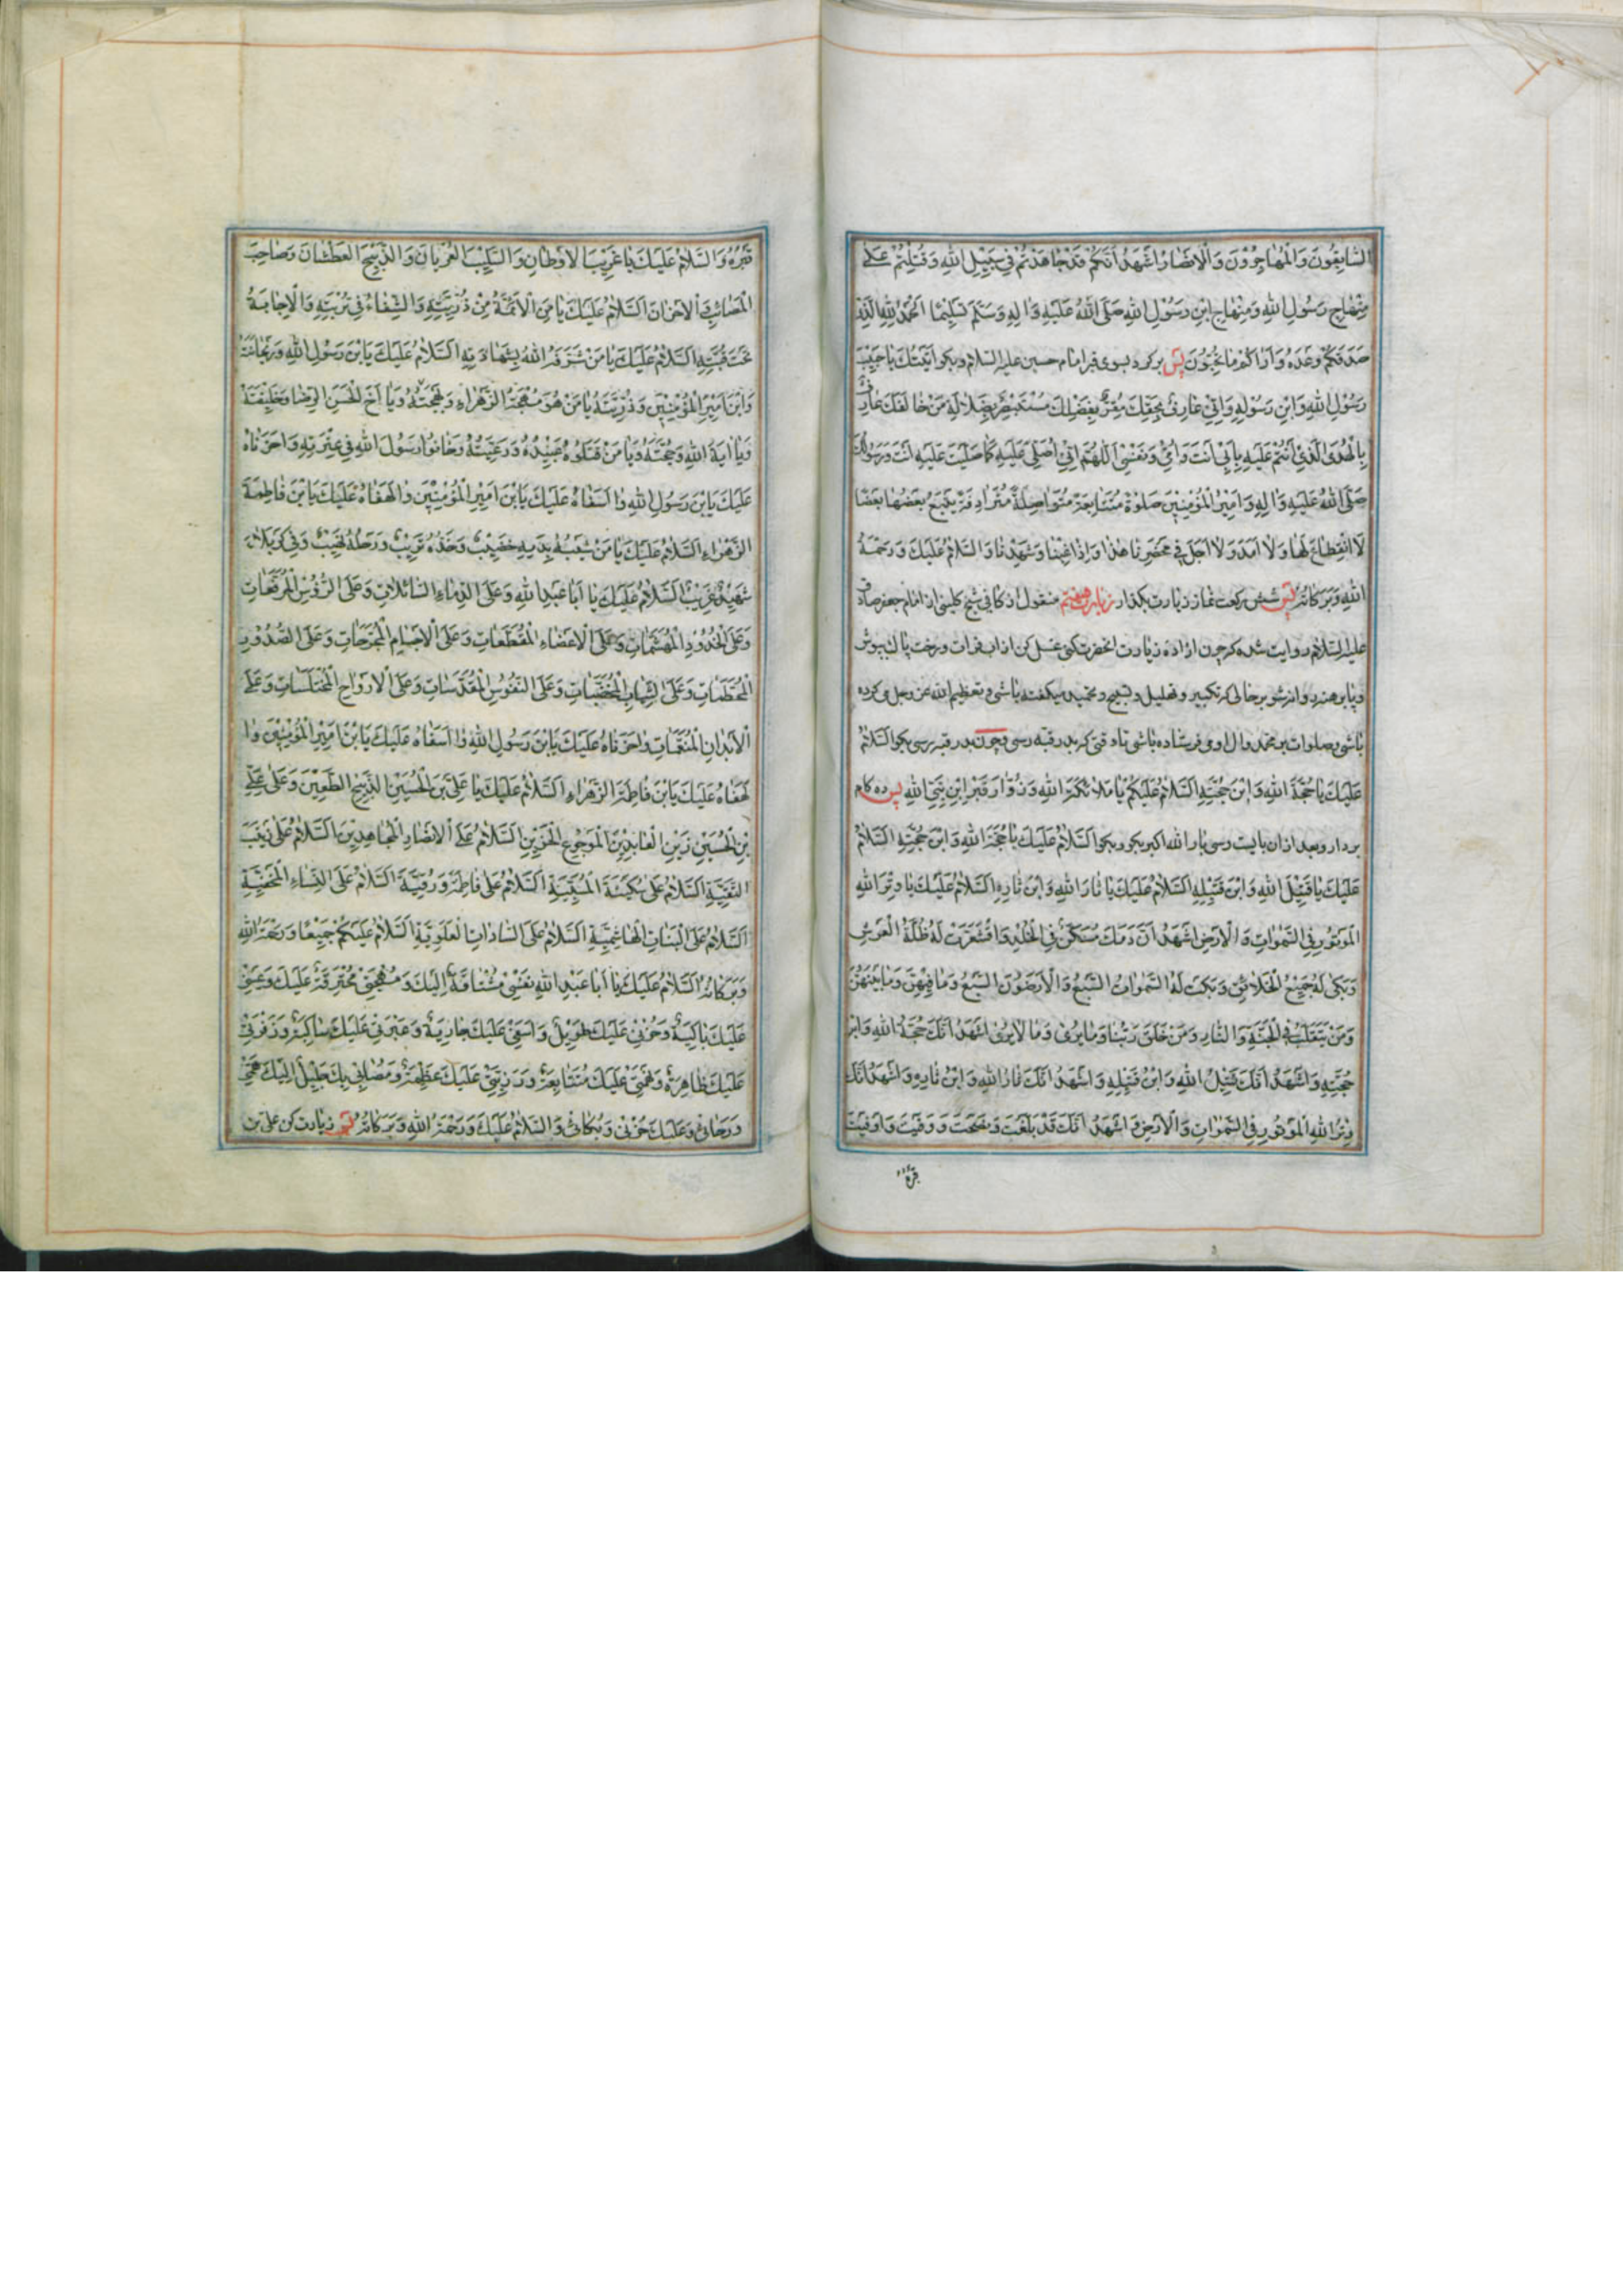 السَّابِقُونَ وَالْمُهَاجِرُوْنَ وَالْاَنْصَارُ اَشْهَدُ اَنَّكُمْ قَدْ جَاهَدْتُمْ فِي سَبِيْلِ اللهِ وَقُتِلْتُمْ عَلٰى
مِنْهَاجِ رَسُولِ اللهِ وَمِنْهَاجِ ابْنِ رَسُوْلِ اللهِ صَلَّى اللهُ عَلَيْهِ وَاٰلِهِ وَسَلَّمَ تَسْلِيْمًا اَلْحَمْدُ لِلّٰهِ الَّذِيْ
صَدَقَكُمْ وَعْدَهُ وَاَرَاكُمْ مَا تُحِبُّوْنَ پس بركرد بسوى قبر امام حسين عليه السلام وبكو اَتَيْتُكَ يَا حَبِيْبَ
رَسُوْلِ اللهِ وَابْنَ رَسُوْلِهِ وَاِنِّيْ عَارِفٌ بِحَقِّكَ مُقِرٌّ بِفَضْلِكَ مُسْتَبْصِرٌ بِضَلَالَةِ مَنْ خَالَفَكَ عَارِفٌ
بِالْهُدَى الَّذِيْ اَنْتُمْ عَلَيْهِ بِاَبِيْ اَنْتَ وَاُمِّيْ وَنَفْسِيْ اَللّٰهُمَّ اِنِّيْ اُصَلِّيْ عَلَيْهِ كَمَا صَلَّيْتَ عَلَيْهِ اَنْتَ وَرَسُوْلُكَ
صَلَّى اللهُ عَلَيْهِ وَاٰلِهِ وَاَمِيْرُ الْمُؤْمِنِيْنَ صَلٰوةً مُتَتَابِعَةً مُتَوَاصِلَةً مُتَرَادِفَةً يَتْبَعُ بَعْضُهَا بَعْضًا
لَا انْقِطَاعَ لَهَا وَلَا اَمَدَ وَلَا اَجَلَ فِيْ مَحْضَرِنَا هٰذَا وَاِذَا غِبْنَا وَشَهِدْنَا وَالسَّلَامُ عَلَيْكَ وَرَحْمَةُ
اللهِ وَبَرَكَاتُهُ پس شش ركعت نماز زيارت بكذار زيارت هفتم منقول از كافى شيخ كلينى از امام جعفر صادق
عليه السلام روايت شده كه چون اراده زيارت انحضرت كنى غسل كن از اب فرات ورخت پاك بپوش
وپا برهنه روانه شو بر حالى كه تكبير وتهليل وتسبيح وتحميد ميكفته باشى وتعظيم الله عز وجل مى كرده
باشى وصلوات بر محمد وال او مى فرستاده باشى تا وقتى كه بدر قبه رسى وچون بدر قبه رسى بكو السَّلَامُ
عَلَيْكَ يَا حُجَّةَ اللهِ وَابْنَ حُجَّتِهِ اَلسَّلَامُ عَلَيْكُمْ يَا مَلَائِكَةَ اللهِ وَزُوَّارَ قَبْرِ ابْنِ نَبِيِّ اللهِ پس ده كام
بردار وبعد ازان بايست وسى بار الله اكبر بكو وبكو اَلسَّلَامُ عَلَيْكَ يَا حُجَّةَ اللهِ وَابْنَ حُجَّتِهِ اَلسَّلَامُ
عَلَيْكَ يَا قَتِيْلَ اللهِ وَابْنَ قَتِيْلِهِ اَلسَّلَامُ عَلَيْكَ يَا ثَارَ اللهِ وَابْنَ ثَارِهِ اَلسَّلَامُ عَلَيْكَ يَا وِتْرَ اللهِ
الْمَوْتُوْرَ فِي السَّمٰوَاتِ وَالْاَرْضِ اَشْهَدُ اَنَّ دَمَكَ سَكَنَ فِي الْخُلْدِ وَاقْشَعَرَّتْ لَهُ ظُلَّةُ الْعَرْشِ
وَبَكٰى لَهُ جَمِيْعُ الْخَلَائِقِ وَبَكَتْ لَهُ السَّمٰوَاتُ السَّبْعُ وَالْاَرَضُوْنَ السَّبْعُ وَمَا فِيْهِنَّ وَمَا بَيْنَهُنَّ
وَمَنْ يَتَقَلَّبُ فِي الْجَنَّةِ وَالنَّارِ وَمَنْ خَلَقَ رَبُّنَا وَمَا يُرٰى وَمَا لَا يُرٰى اَشْهَدُ اَنَّكَ حُجَّةُ اللهِ وَابْنُ
حُجَّتِهِ وَاَشْهَدُ اَنَّكَ قَتِيْلُ اللهِ وَابْنُ قَتِيْلِهِ وَاَشْهَدُ اَنَّكَ ثَارُ اللهِ وَابْنُ ثَارِهِ وَاَشْهَدُ اَنَّكَ
وِتْرُ اللهِ الْمَوْتُوْرُ فِي السَّمٰوَاتِ وَالْاَرْضِ وَاَشْهَدُ اَنَّكَ قَدْ بَلَّغْتَ وَنَصَحْتَ وَوَفَيْتَ وَاَوْفَيْتَ
قَبْرُهُ وَالسَّلَامُ عَلَيْكَ يَا غَرِيْبَ الْاَوْطَانِ وَالسَّلِيْبَ الْعُرْيَانَ وَالذَّبِيْحَ الْعَطْشَانَ وَصَاحِبَ
الْمَصَائِبِ وَالْاَحْزَانِ اَلسَّلَامُ عَلَيْكَ يَا مَنِ الْاَئِمَّةُ مِنْ ذُرِّيَّتِهِ وَالشِّفَاءُ فِيْ تُرْبَتِهِ وَالْاِجَابَةُ
تَحْتَ قُبَّتِهِ اَلسَّلَامُ عَلَيْكَ يَا مَنْ شَرَّفَهُ اللهُ بِشَهَادَتِهِ اَلسَّلَامُ عَلَيْكَ يَابْنَ رَسُوْلِ اللهِ وَرَيْحَانَتَهُ
وَابْنَ اَمِيْرِ الْمُؤْمِنِيْنَ وَذُرِّيَّتَهُ يَا مَنْ هُوَ مُهْجَةُ الزَّهْرَاءِ وَبَهْجَتُهُ وَيَا اَخَ الْحَسَنِ الرِّضَا وَخَلِيْفَتَهُ
وَيَا اٰيَةَ اللهِ وَحُجَّتَهُ وَيَا مَنْ قَتَلُوْهُ عَبِيْدُهُ وَرَعِيَّتُهُ وَخَانُوْا رَسُوْلَ اللهِ فِيْ عِتْرَتِهِ وَاحَزَنَاهُ
عَلَيْكَ يَابْنَ رَسُوْلِ اللهِ وَا اَسَفَاهُ عَلَيْكَ يَابْنَ اَمِيْرِ الْمُؤْمِنِيْنَ وَالَهَفَاهُ عَلَيْكَ يَابْنَ فَاطِمَةَ
الزَّهْرَاءِ السَّلَامُ عَلَيْكَ يَا مَنْ شَيْبُهُ بِدَمِهِ خَضِيْبٌ وَخَدُّهُ تَرِيْبٌ وَرَحْلُهُ نَهِيْبٌ وَفِيْ كَرْبَلَاءَ
شَهِيْدٌ غَرِيْبٌ اَلسَّلَامُ عَلَيْكَ يَا اَبَا عَبْدِ اللهِ وَعَلَى الدِّمَاءِ السَّائِلَاتِ وَعَلَى الرُّؤُسِ الْمُرَفَّعَاتِ
وَعَلَى الْخُدُوْدِ الْمُهَشَّمَاتِ وَعَلَى الْاَعْضَاءِ الْمُقَطَّعَاتِ وَعَلَى الْاَجْسَامِ الْمُجَرَّحَاتِ وَعَلَى الصُّدُوْرِ
الْمُحَطَّمَاتِ وَعَلَى الشِّيْبَاتِ الْمُخَضَّبَاتِ وَعَلَى النُّفُوْسِ الْمُقَدَّسَاتِ وَعَلَى الْاَرْوَاحِ الْمُخْتَلَسَاتِ وَعَلٰى
الْاَبْدَانِ الْمُنَعَّمَاتِ وَاحَزَنَاهُ عَلَيْكَ يَابْنَ رَسُوْلِ اللهِ وَا اَسَفَاهُ عَلَيْكَ يَابْنَ اَمِيْرِ الْمُؤْمِنِيْنَ وَا
لَهَفَاهُ عَلَيْكَ يَابْنَ فَاطِمَةَ الزَّهْرَاءِ اَلسَّلَامُ عَلَيْكَ يَا عَلِيَّ بْنَ الْحُسَيْنِ الذَّبِيْحِ الطَّعِيْنِ وَعَلٰى عَلِيِّ
بْنِ الْحُسَيْنِ زَيْنِ الْعَابِدِيْنَ الْمَوْجُوْعِ الْحَزِيْنِ اَلسَّلَامُ عَلَى الْاَنْصَارِ الْمُجَاهِدِيْنَ اَلسَّلَامُ عَلٰى زَيْنَبَ
النَّقِيَّةِ اَلسَّلَامُ عَلٰى سُكَيْنَةَ الْمَسْبِيَّةِ اَلسَّلَامُ عَلٰى فَاطِمَةَ وَرُقَيَّةَ اَلسَّلَامُ عَلَى النِّسَاءِ
اَلسَّلَامُ عَلَى الْبَنَاتِ الْهَاشِمِيَّةِ اَلسَّلَامُ عَلَى السَّادَاتِ الْعَلَوِيَّةِ اَلسَّلَامُ عَلَيْكُمْ جَمِيْعًا وَرَحْمَةُ اللهِ
وَبَرَكَاتُهُ اَلسَّلَامُ عَلَيْكَ يَا اَبَا عَبْدِ اللهِ نَفْسِيْ مُشْتَاقَةٌ اِلَيْكَ وَمُهْجَتِيْ مُحْتَرِقَةٌ عَلَيْكَ وَعَيْنِيْ
عَلَيْكَ بَاكِيَةٌ وَحُزْنِيْ عَلَيْكَ طَوِيْلٌ وَاَسَفِيْ عَلَيْكَ جَارِيَةٌ وَعَبْرَتِيْ عَلَيْكَ سَاكِبَةٌ وَزَفْرَتِيْ
عَلَيْكَ ظَاهِرَةٌ عَلَيْكَ مُتَتَابِعَةٌ وَرَزِيَّتِيْ عَلَيْكَ عَظِيْمَةٌ وَمُصَابِيْ بِكَ جَلِيْلٌ اِلَيْكَ
وَرَجَائِيْ وَعَلَيْكَ حُزْنِيْ وَبُكَائِيْ وَالسَّلَامُ عَلَيْكَ وَرَحْمَةُ اللهِ وَبَرَكَاتُهُ پس زيارت كن على بن